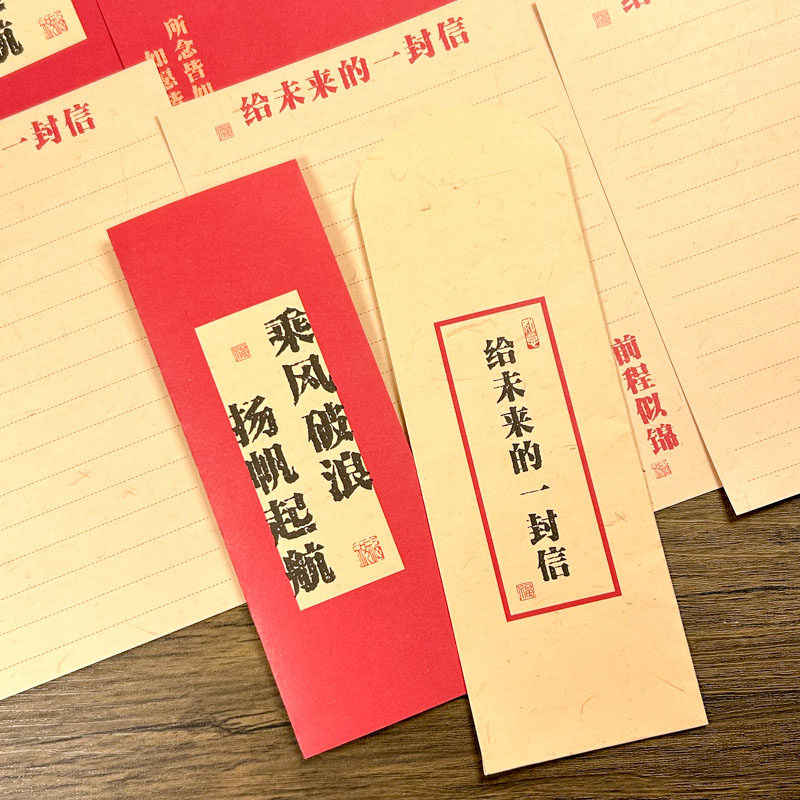 航
所念皆如
如愿
给未来的一封信
一封信
给
乘风破浪
扬帆起航
给未来的一封信
前程似锦